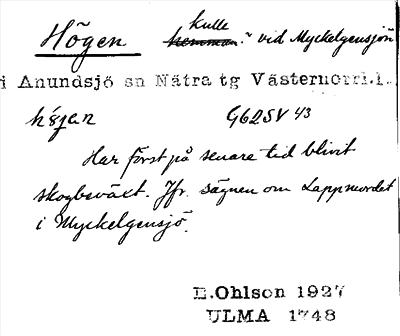 Högen kulle hemman.? vid Myckelgensjön
i Anundsjö sn Nätra tg Västernorrl.l.
hö́gan G62SV43
Har först på senare tid blivit
skogbeväxt. Jfr. sägnen om Lappmordet
i Myckelgensjö.
E.Ohlson 1927
ULMA 1748